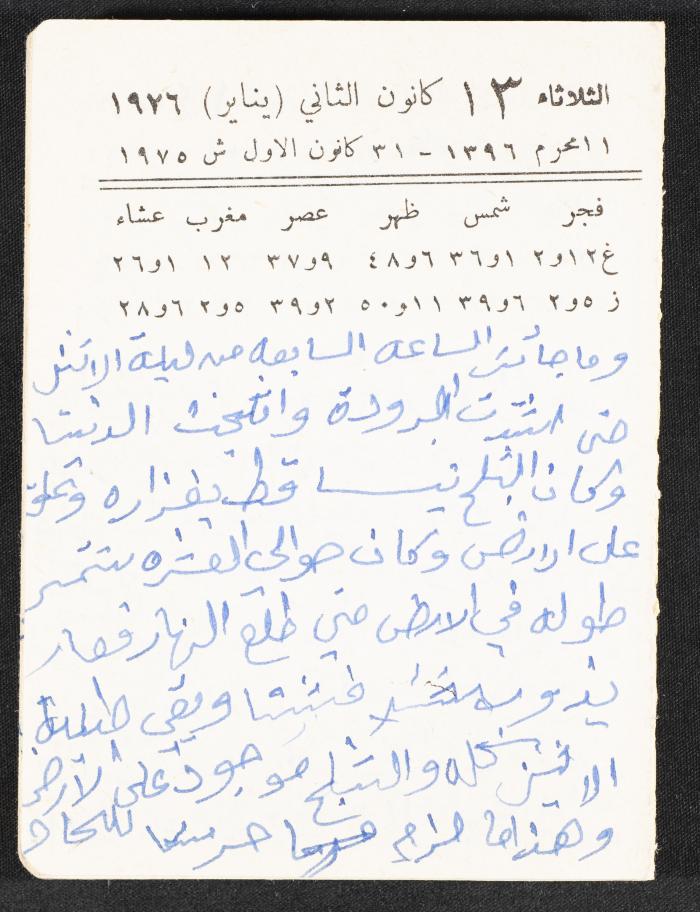 الثلاثاء ١٣ كانون الثاني (يناير) ١٩٧٦
١١ محرم ١٣٩٦ - ٣١ كانون الاول ش ١٩٧٥
فجر شمس ظهر عصر مغرب عشاء
غ ١٢و٢ ١و٣٦ ٦و٤٨ ٩و٣٧ ١٢ ١و٢٦
ز ٥و٢ ٦و٣٩ ١١و٥٠ ٢و٣٩ ٥و٢ ٦و٢٨
وما جائت الساعه السابعه من ليلة الاثنين
حتى اشتدت البرودة واثلجت الدنيا
وكان الثلج يتساقط بغزاره
على الارض وكان حوالي العشره سنتمتر
طوله في الارض حتى طلع النهار فصار
يذوب شيئا وبقى طيلة
الاثنين كله والثلج موجود على الارض
وهذا